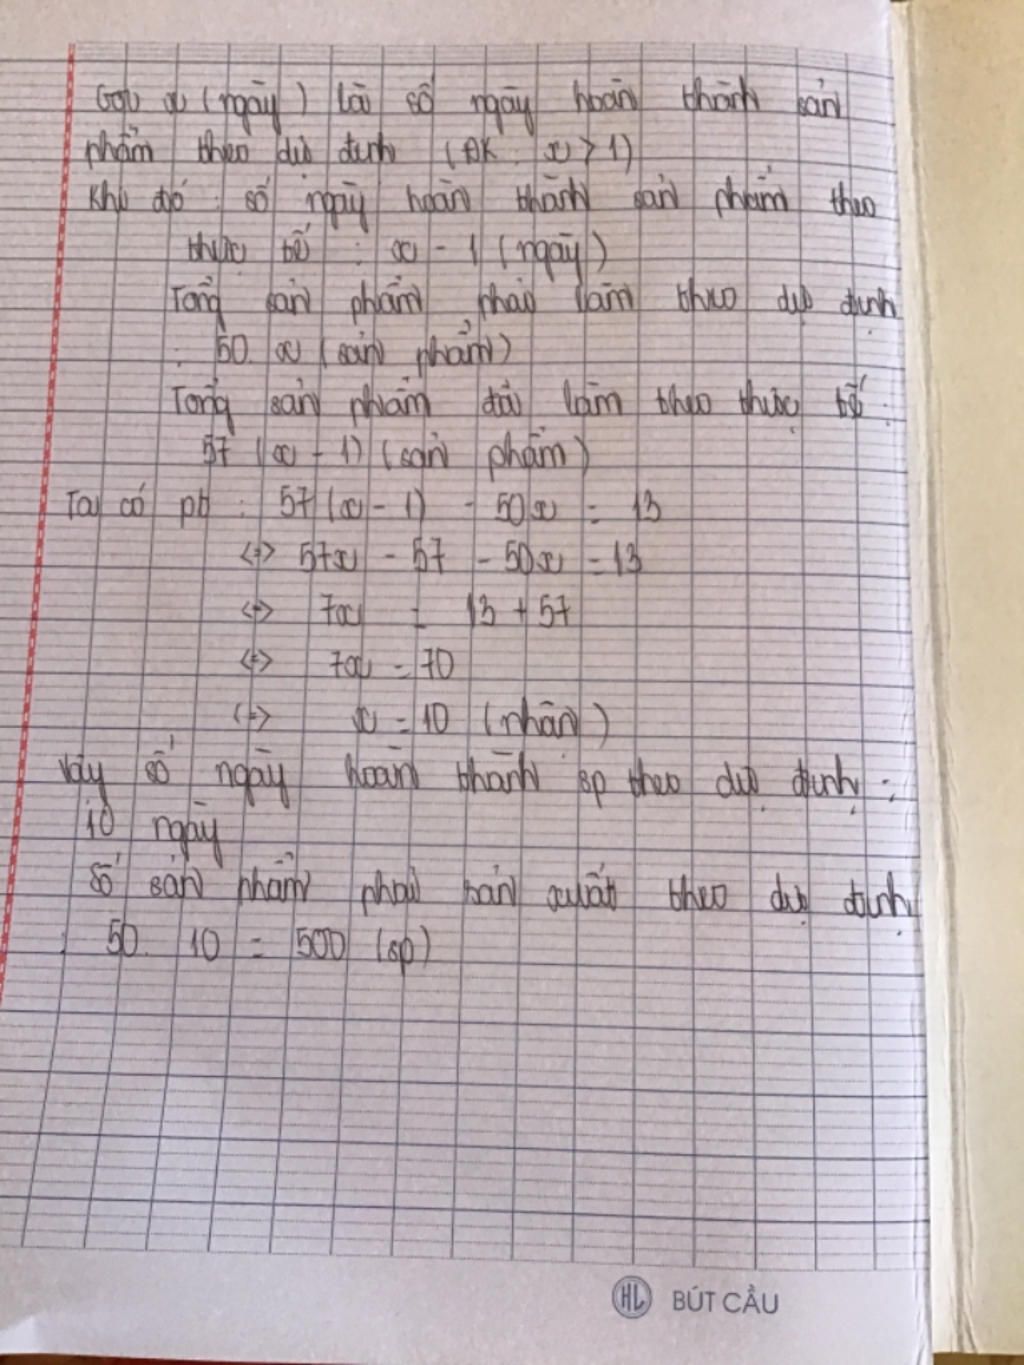 Gọi x (ngày) là số ngày hoàn thành sản
phẩm theo dự định (ĐK: x > 1)
Khi đó: số ngày hoàn thành sản phẩm theo
thực tế: x - 1 (ngày)
Tổng sản phẩm phải làm theo dự định
: 50. x (sản phẩm)
Tổng sản phẩm đã làm theo thực tế:
57 (x - 1) (sản phẩm)
Ta có pt: 57(x - 1) - 50x = 13
<=> 57x - 57 - 50x = 13
<=> 7x = 13 + 57
<=> 7x = 70
<=> x = 10 (nhận)
Vậy số ngày hoàn thành sp theo dự định:
10 ngày
Số sản phẩm phải sản xuất theo dự định
: 50. 10 = 500 (sp)
HL BÚT CẦU